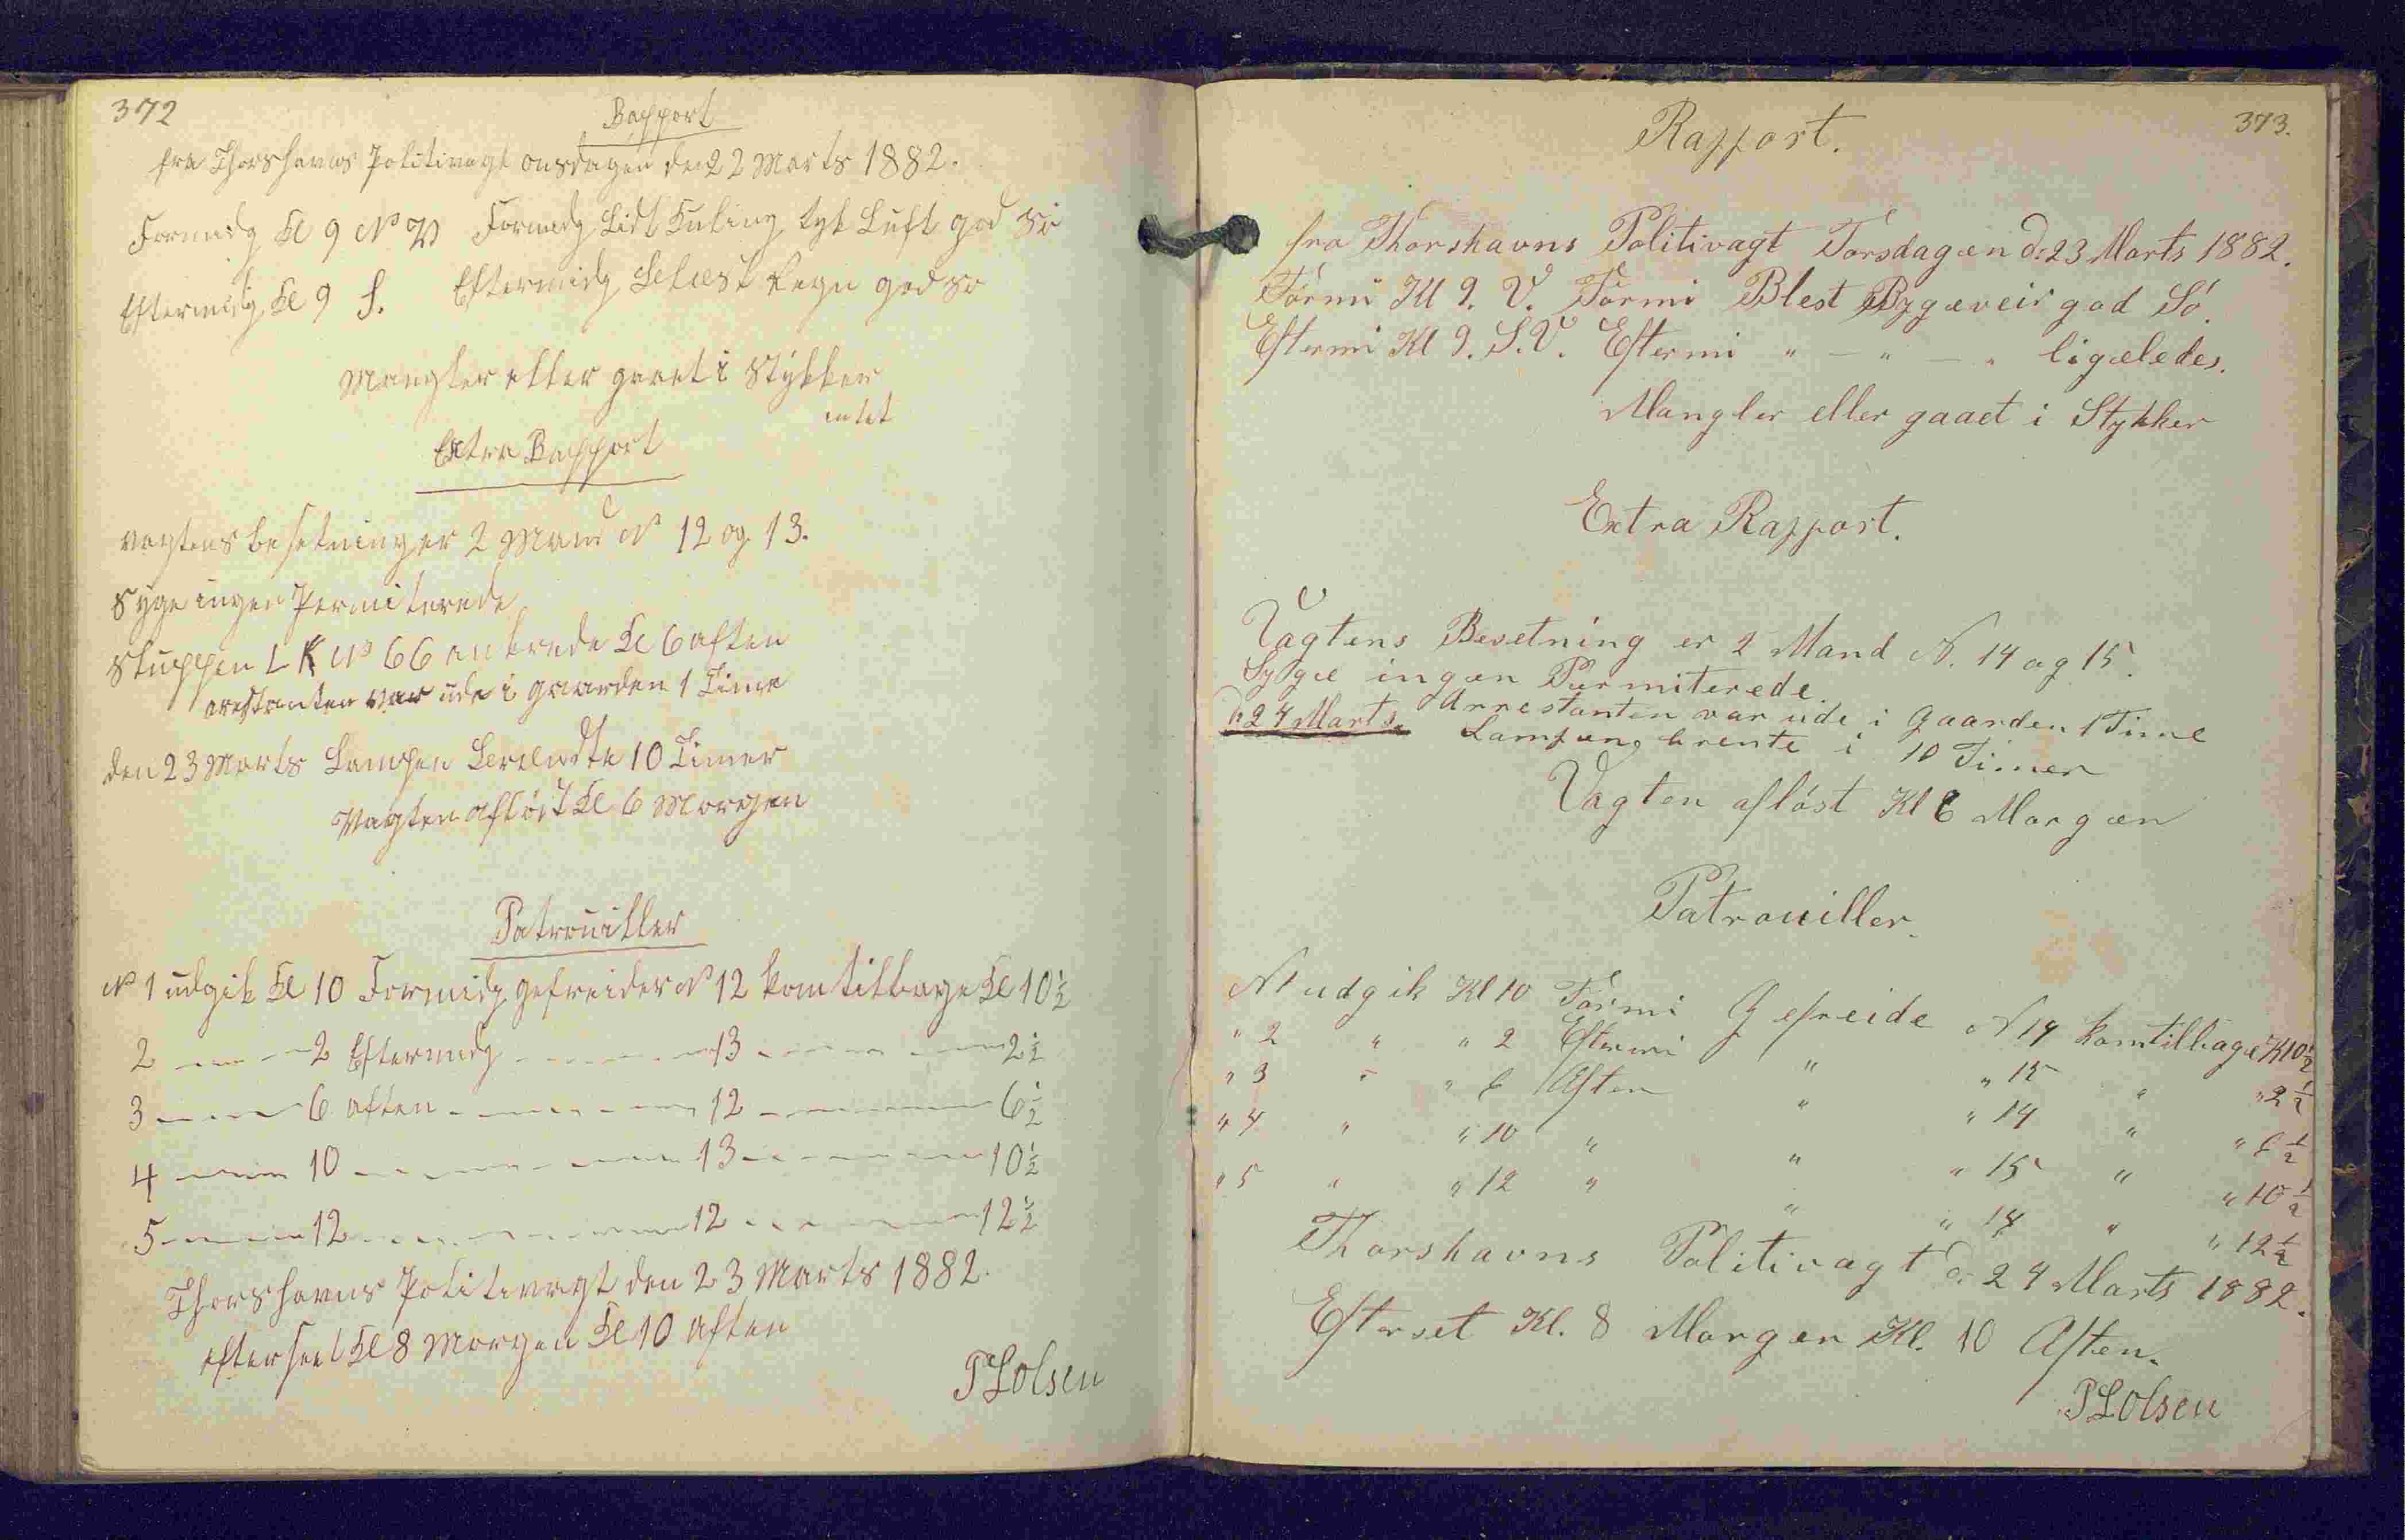 372
Rapport
fra Thorshavns Politivagt onsdagen den 22 Marts 1882.
Formidg Kl 9 N V Formidg Lidt Kuling tyk Luft god Sö
Eftermidg Kl 9 S. Eftermidg Blæst Regn god Sö
Mangler eller gaaet i Stykker
intet
Extra Rapport
vagtens besetning er 2 Mand No 12 og 13.
Syge ingen Permiterede
Sluppen L K No 66 ankrede Kl 6 aften
arestanten var ude i gaarden 1 Time
den 23 Marts Lampen brendte 10 Timer
Vagten afløst Kl 6 Morgen
Patrouiller
No 1 udgik Kl 10 Formidg gefreider No 12 kom tilbage Kl 10½
2 — — 2 Eftermidg — — 13 — — 2½
3 — — 6 aften — — 12 — — 6½
4 — — 10 — — 13 — — 10½
5 — — 12 — — 12 — — 12½
Thorshavns Politivagt den 23 Marts 1882.
efterseet Kl 8 Morgen Kl 10 Aften
P L Olsen
373.
Rapport.
fra Thorshavns Politivagt Torsdagen d. 23 Marts 1882.
Formi Kl 9. V. Formi Blest Bygeveir god Sö.
Eftermi Kl 9. S.V. Eftermi " — " — " ligeledes.
Mangler eller gaaet i Stykker
Extra Rapport.
Vagtens Besetning er 2 Mand N. 14 og 15.
Syge ingen Permiterede.
Arrestanten var ude i Gaarden 1 Time
d. 24 Marts. Lampen brente i 10 Timer
Vagten afløst Kl 6 Morgen
Patrouiller.
N 1 udgik Kl 10 Formi Gefreide N 14 kom tilbage Kl 10½
" 2 " " 2 Eftermi " " 15 " " 2½
" 3 " " 6 Aften " " 14 " " 6½
" 4 " " 10 " " " 15 " " 10½
" 5 " " 12 " " " 14 " " 12½
Thorshavns Politivagt d. 24 Marts 1882.
Efterset Kl. 8 Morgen Kl. 10 Aften.
P L Olsen